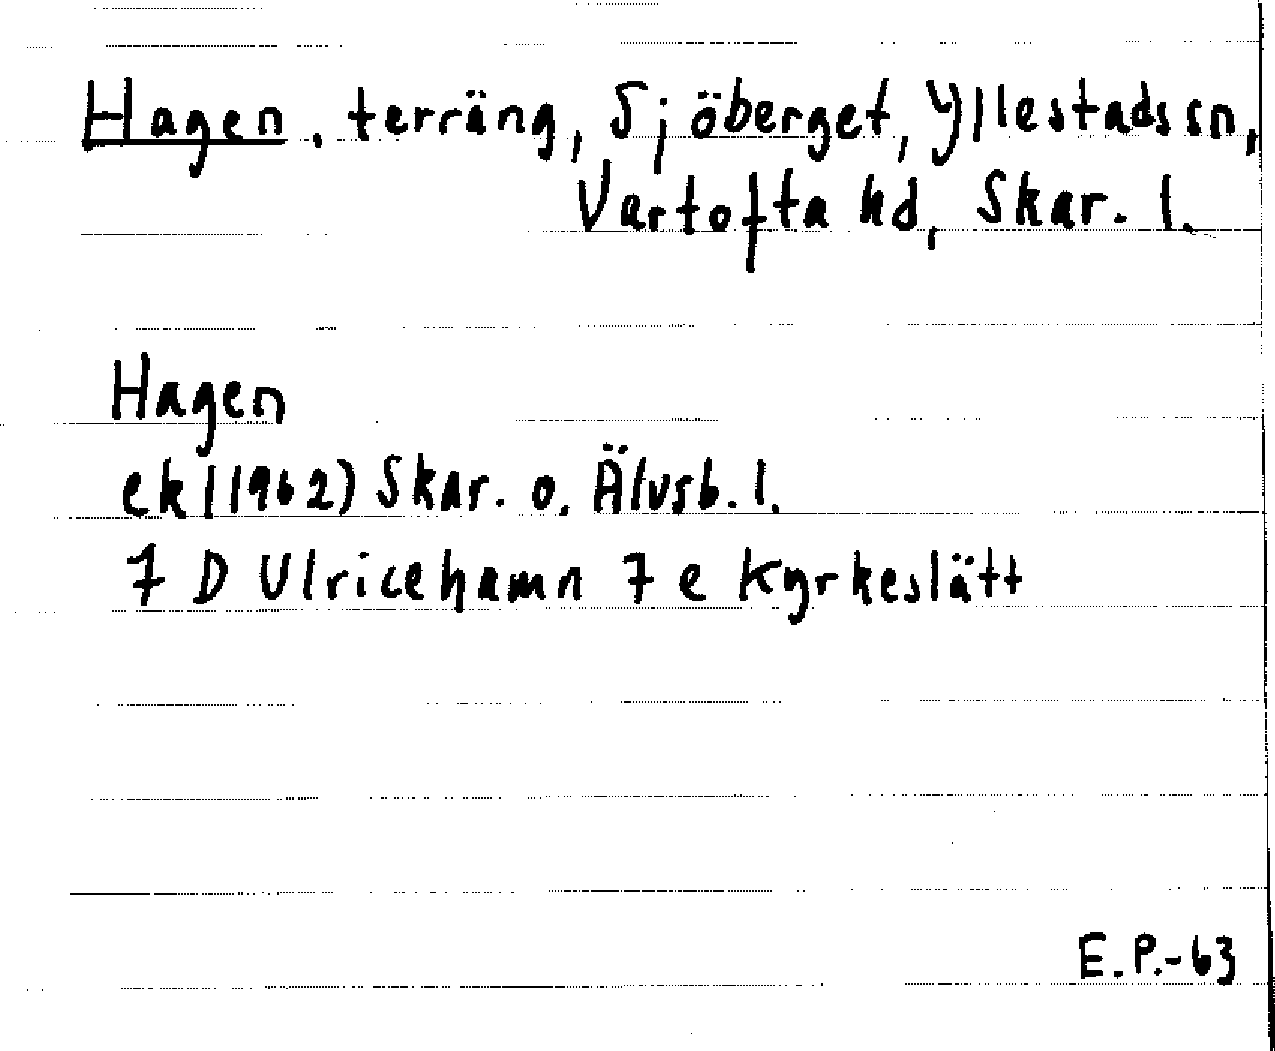 Hagen, terräng, Sjöberget, Yllestads sn,
Vartofta hd, Skar. l.
Hagen
ek (1962) Skar. o. Älvsb. l.
7 D Ulricehamn 7 e Kyrkeslätt
E.P.-63